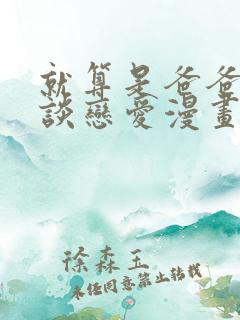 就算是爸爸
談戀愛漫畫
徐森玉
未經同意禁止轉載